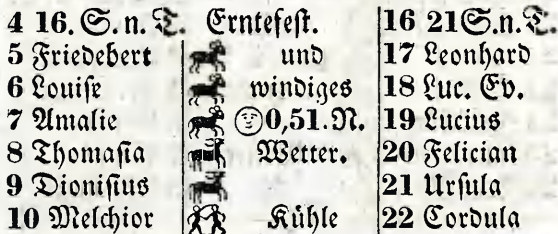 4 16. S. n. T. Erntefest. 16 21 S. n. T.
5 Friedebert und 17 Leonhard
6 Louise windiges 18 Luc. Ev.
7 Amalie 0,51. N. 19 Lucius
8 Thomasia Wetter. 20 Felician
9 Dionisius 21 Ursula
10 Melchior Kühle 22 Cordula